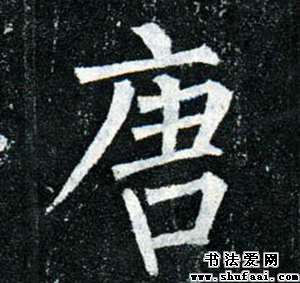 唐
书法爱网
www.shufaai.com